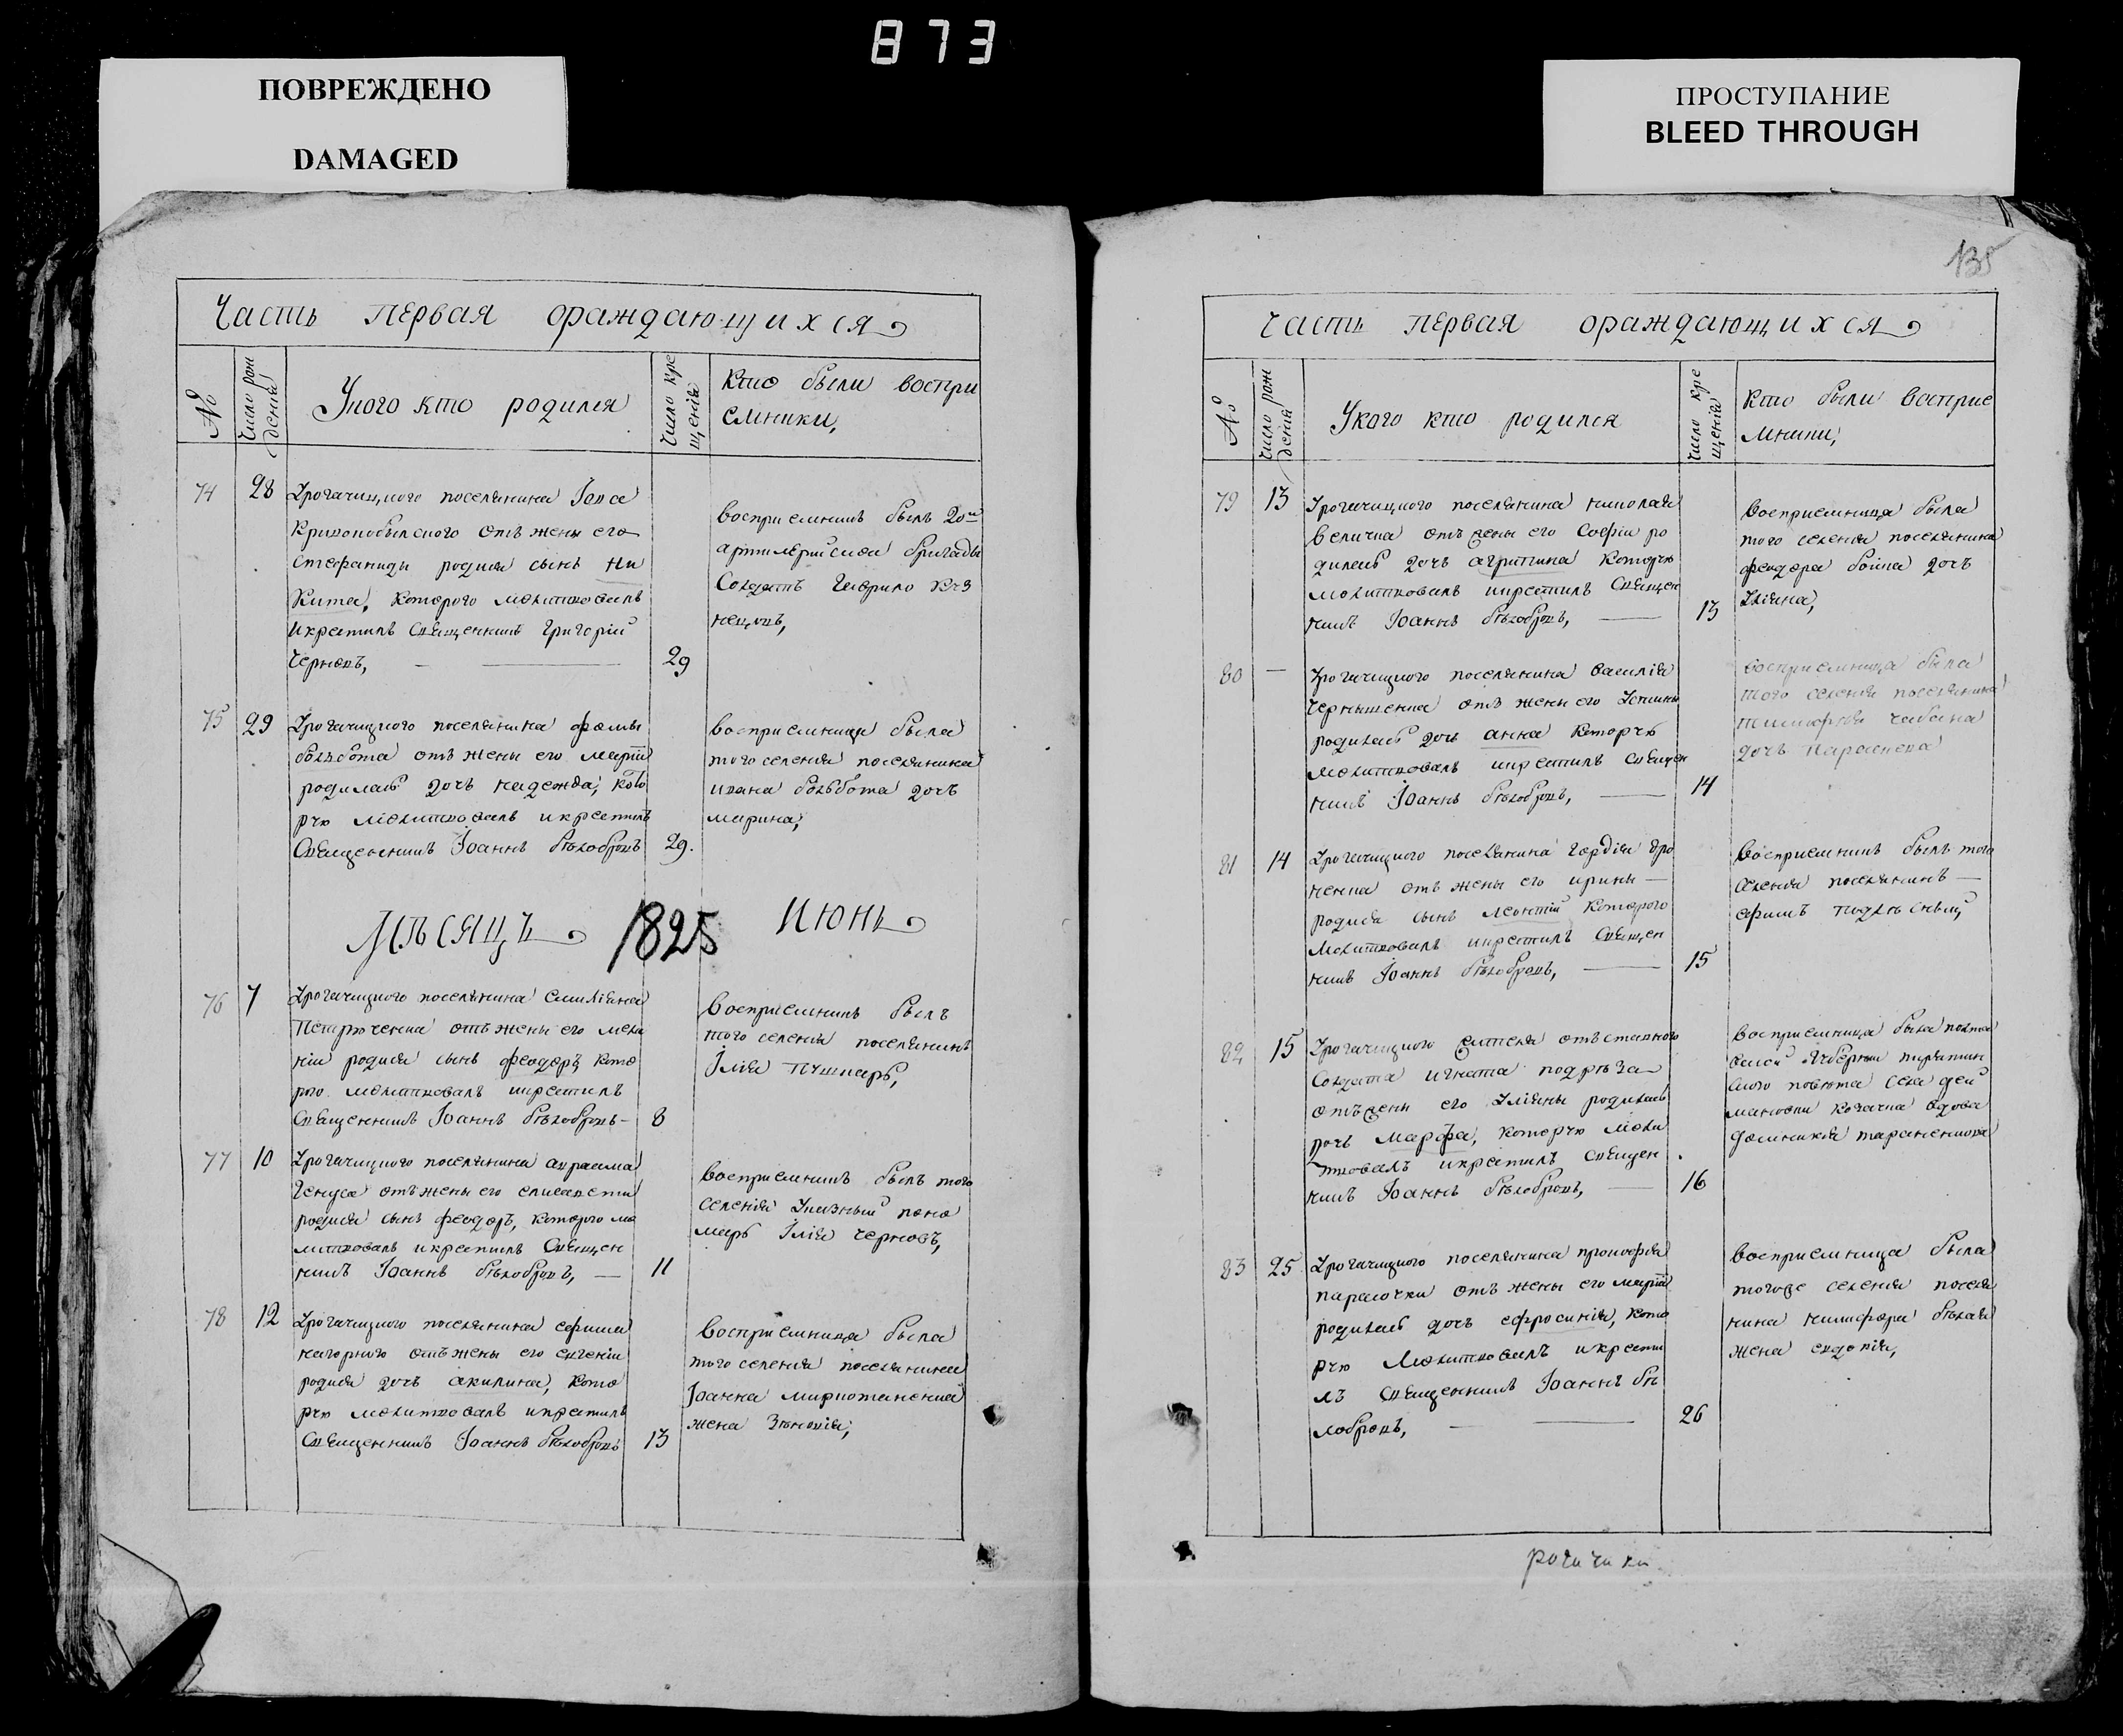 873
ПОВРЕЖДЕНО
DAMAGED
ПРОСТУПАНИЕ
BLEED THROUGH
Часть первая ораждающихся
№
Число рож
дения
Укого кто родился
Число кре
щенія
Кто были воспри
емники,
74 28 Урогачицкого поселянина
отъ жены его
Стефаниды родися сынъ Ни
Кита, которого молитвовалъ
икрестилъ Священникъ Григорій
Черновъ, 29
воспріемникъ былъ 20й
артилерійской бригады
Солдатъ Гаврило Куз
нецовъ,
75 29 Урогачицкого поселянина фомы
болбота отъ жены его марѳы
родилась дочь надежда, кото
рую молитвовалъ икрестилъ
Священникъ Іоаннъ бѣлобровъ 29.
воспріемница была
того селенія поселянина
ивана болбота дочь
марина,
Мѣсяцъ 1825 Июнь
76 7 Урогачицкого поселянина емиліяна
Петрюченка отъ жены его мела
ніи родися сынъ феодоръ кото
рого молитвовалъ икрестилъ
Священникъ Іоаннъ бѣлобровъ 8
Воспріемникъ былъ
того селенія поселянинъ
Ілія Пушкаръ,
77 10 Урогачицкого поселянина авраама
отъ жены его елисаветы
родися сынъ феодоръ, которого мо
литвовалъ икрестилъ Священ
никъ Іоаннъ бѣлобровъ, 11
Воспріемникъ былъ того
селенія Указный поно
марь Ілія Черновъ,
78 12 Урогачицкого поселянина ефима
нагорного отъ жены его евгеніи
родися дочь акилина, кото
рую молитвовалъ икрестилъ
Священникъ Іоаннъ бѣлобровъ 13
Воспріемница была
того селенія поселянина
Іоанна мирготаненка
жена Зѣновія,
135
Часть первая ораждающихся
№
Число рож
дения
Укого кто родился
Число кре
щенія
Кто были воспріе
мники,
79 13 Урогачицкого поселянина николая
величка отъ жены его Софіи ро
дилась дочь агрипина которую
молитвовалъ икрестилъ Священ
никъ Іоаннъ бѣлобровъ, 13
Воспріемница была
того селенія поселянина
феодора бойка дочь
Уліяна,
80 — Урогачицкого поселянина василія
Чернышенка отъ жены его Устины
родилась дочь анна которую
молитвовалъ икрестилъ Священ
никъ Іоаннъ бѣлобровъ, 14
Воспріемница была
того селенія поселянина
тимофея чабана
дочь Параскева
81 14 Урогачицкого поселянина гордія гро
ненка отъ жены его ирины
родися сынъ леонтій которого
молитвовалъ икрестилъ Священ
никъ Іоаннъ бѣлобровъ, 15
Воспріемникъ былъ того
Селенія поселянинъ
ефимъ
82 15 Урогачицкого жителя отъставного
Солдата игната подрѣза
отъ жены его Уліяны родилась
дочь марѳа, которую моли
твовалъ икрестилъ Священ
никъ Іоаннъ бѣлобровъ, 16
воспріемница была полта
вской губерніи пирятин
ского повѣта села дей
мановки козачка вдова
домникія тараненкова
83 25 Урогачицкого поселянина прокофія
парасочки отъ жены его марѳы
родилась дочь ефросинія, кото
рую молитвовалъ икрести
лъ Священникъ Іоаннъ бѣ
лобровъ, 26
воспріемница была
тогоже селенія поселя
нина никифора бѣлая
жена евдокія,
рогачики